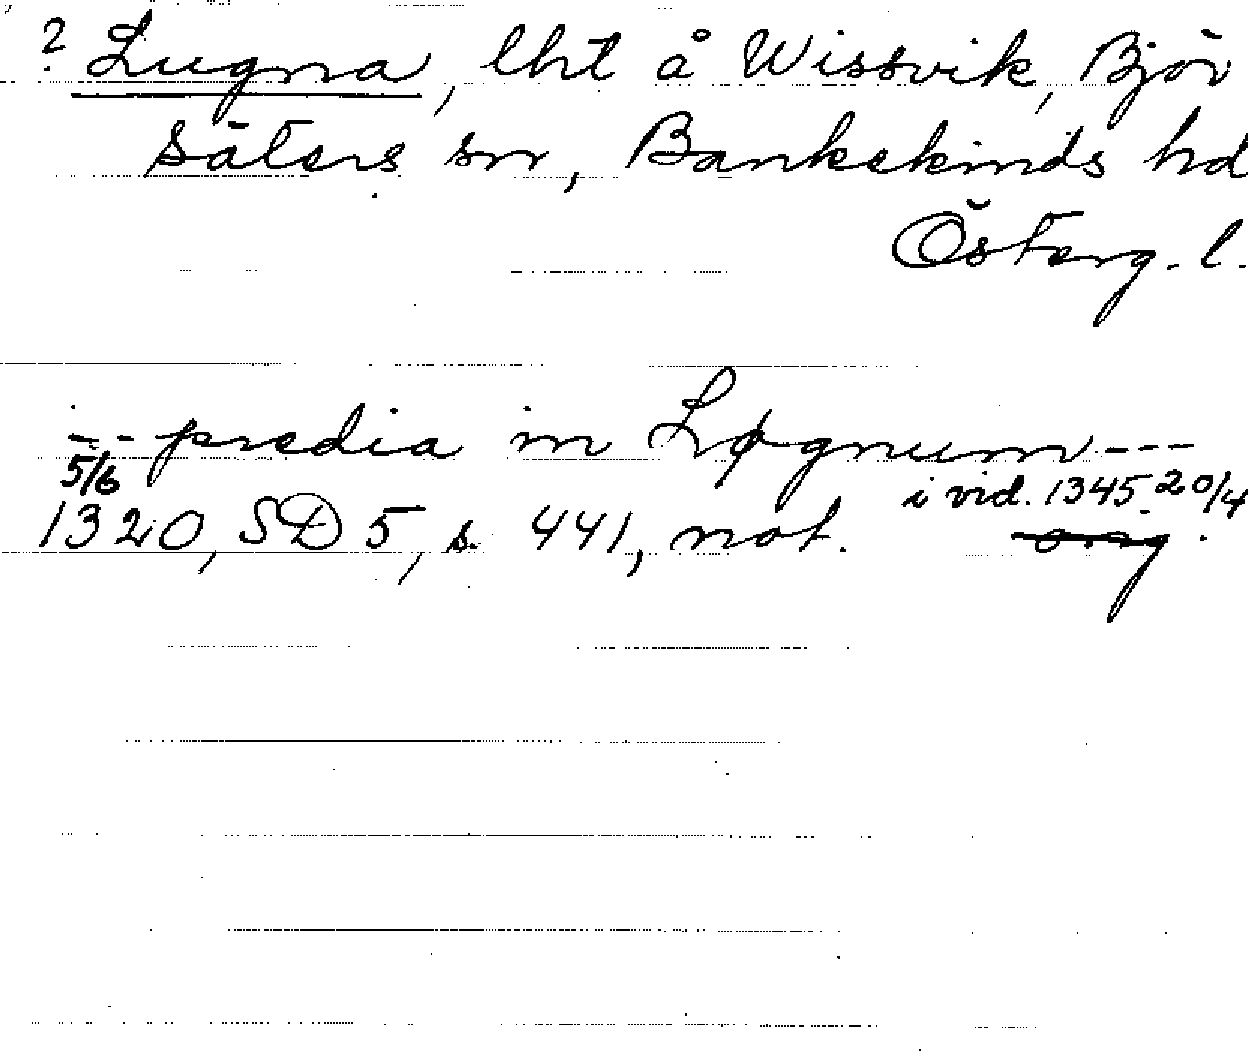 ? Lugna, lht å Wissvik, Björ
säters sn, Bankekinds hd
Österg. l.
--- predia in Løgnum ---
5/6 i vid. 1345 20/4
1320, SD 5, s. 441, not. org.